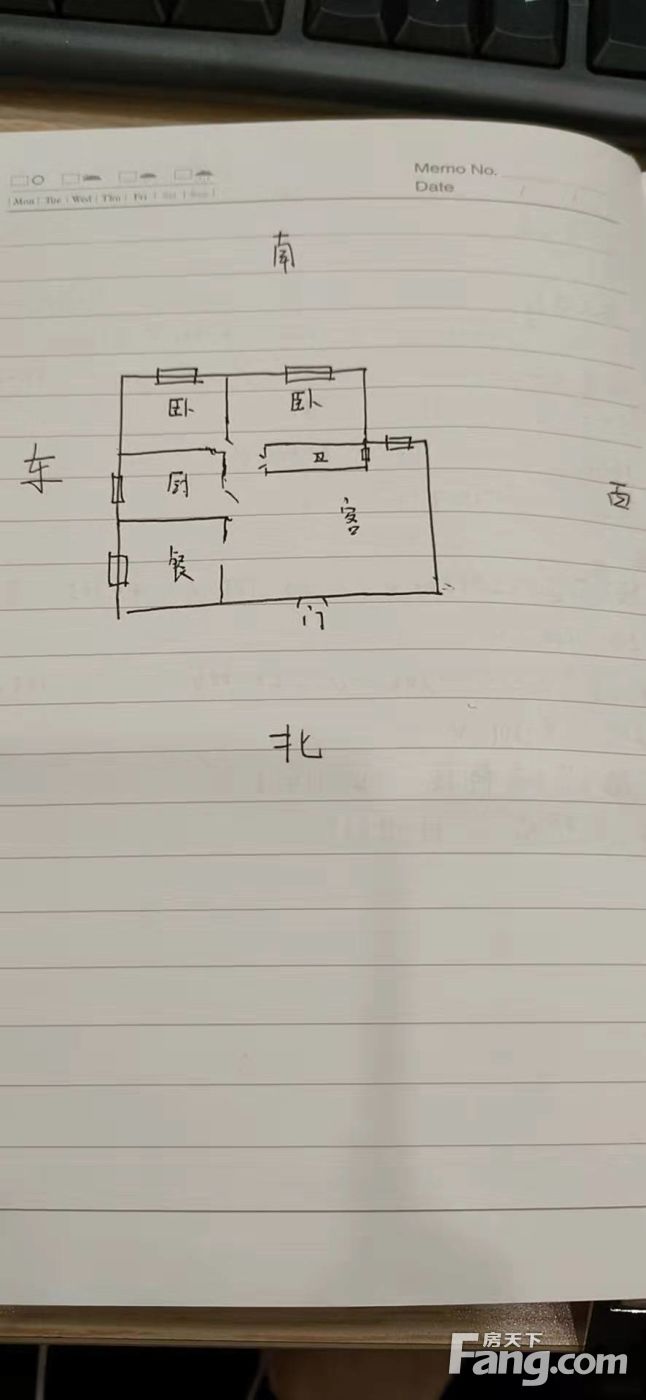 Memo No.
Date
Mon Tue Wed Thu Fri Sat Sun
南
卧 卧
东 厨 卫 西
客
餐
门
北
房天下
Fang.com